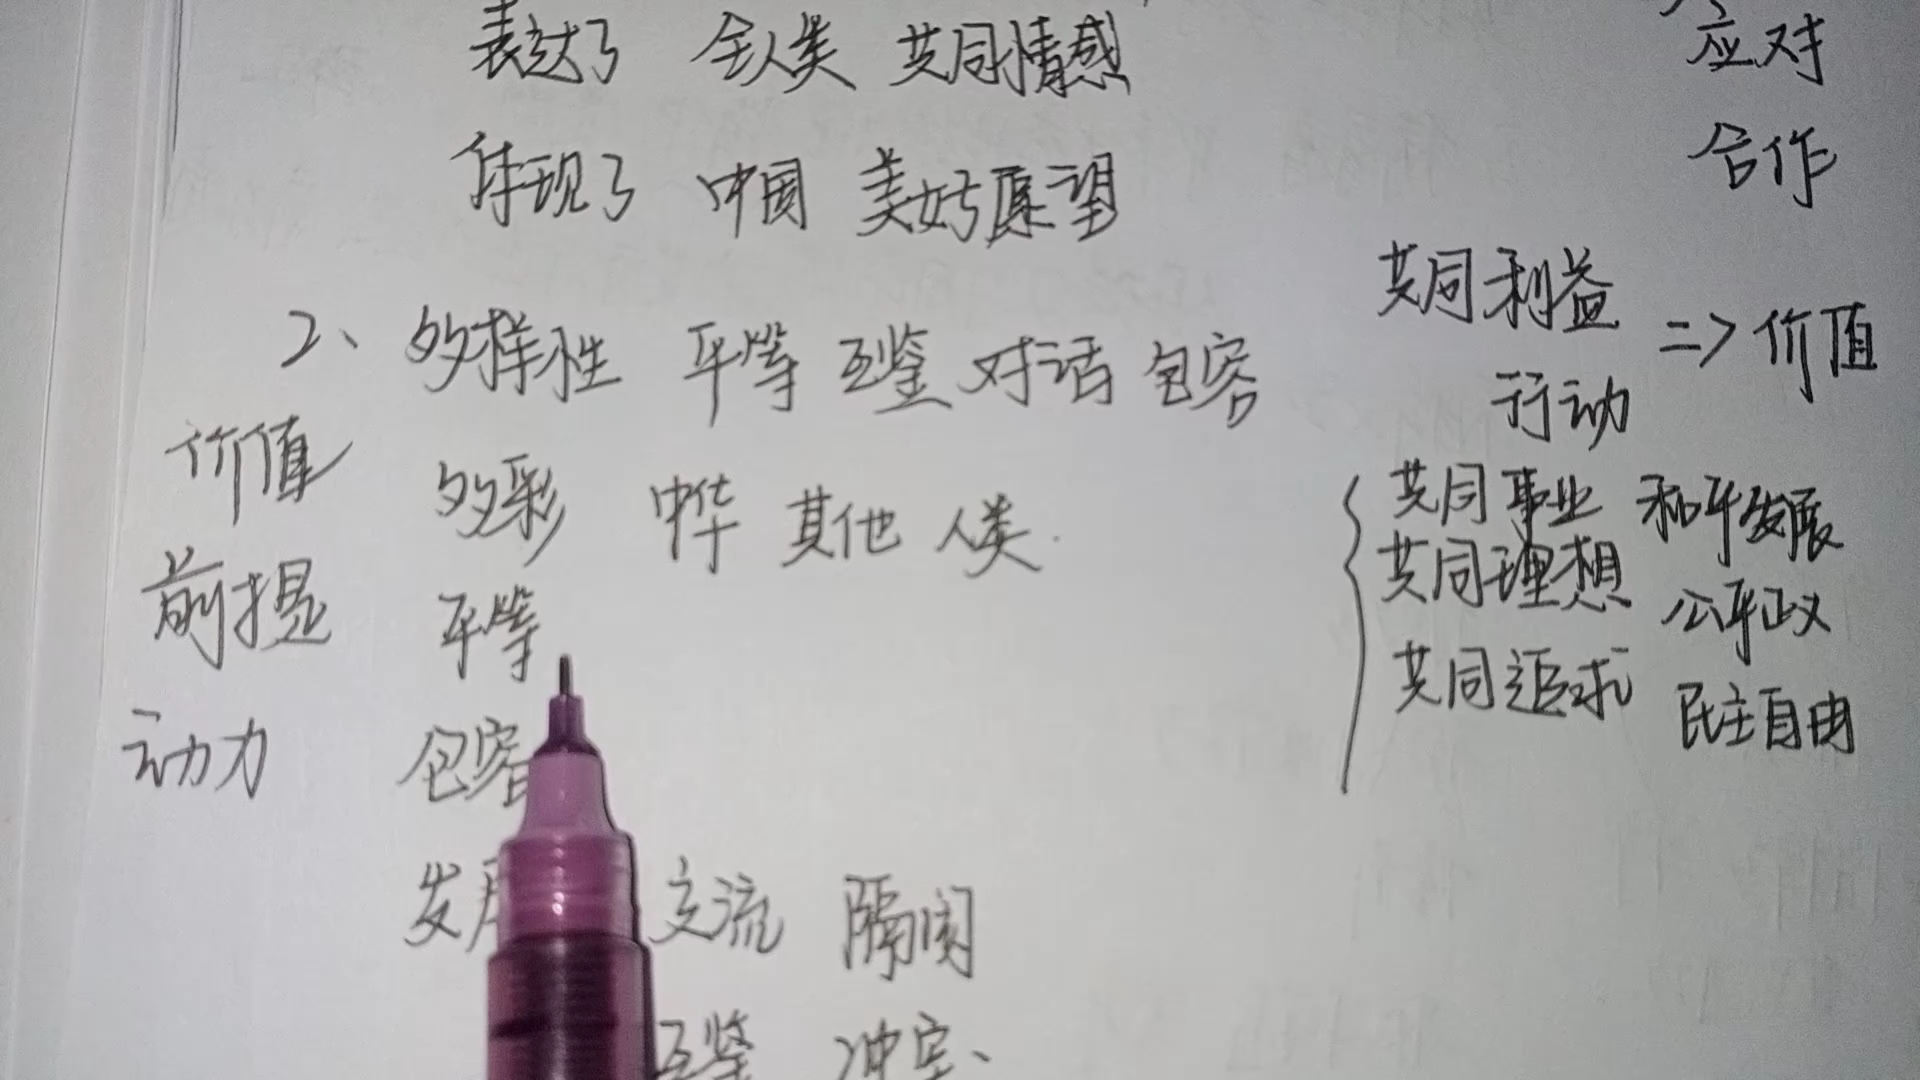 表达了 全人类 共同情感
体现了 中国 美好愿望
2、多样性 平等 互鉴 对话 包容
价值 多彩 中华 其他 人类.
前提 平等
动力 包容
发 交流 隔阂
互鉴 冲突、
应对
合作
共同利益
行动 => 价值
共同事业 和平发展
共同理想 公平正义
共同追求 民主自由